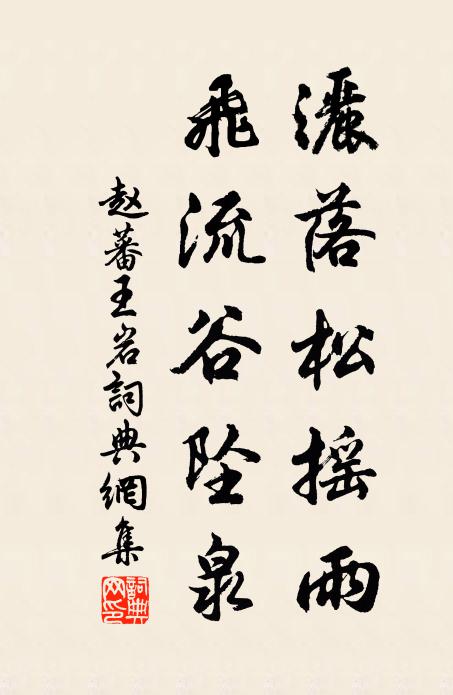 灑落松摇雨
飛流谷坠泉
赵蕃王岩詞典網集
詞典網印